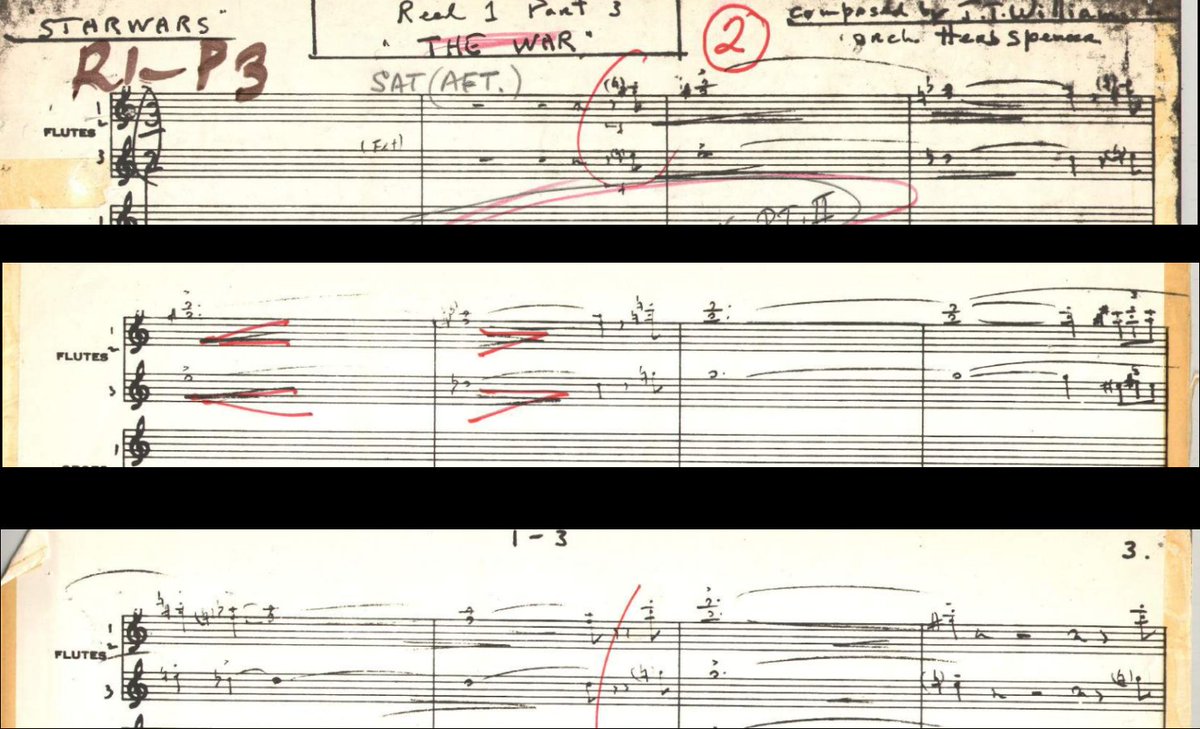 "STARWARS"
Reel 1 Part 3
"THE WAR"
2
Composed by J.T. Williams
orch Herb Spencer
R1-P3
SAT (AFT.)
1
2
FLUTES
3
3
2
PT. II
1
1
2
FLUTES
3
3
3
1
1-3
3.
1
2
FLUTES
3